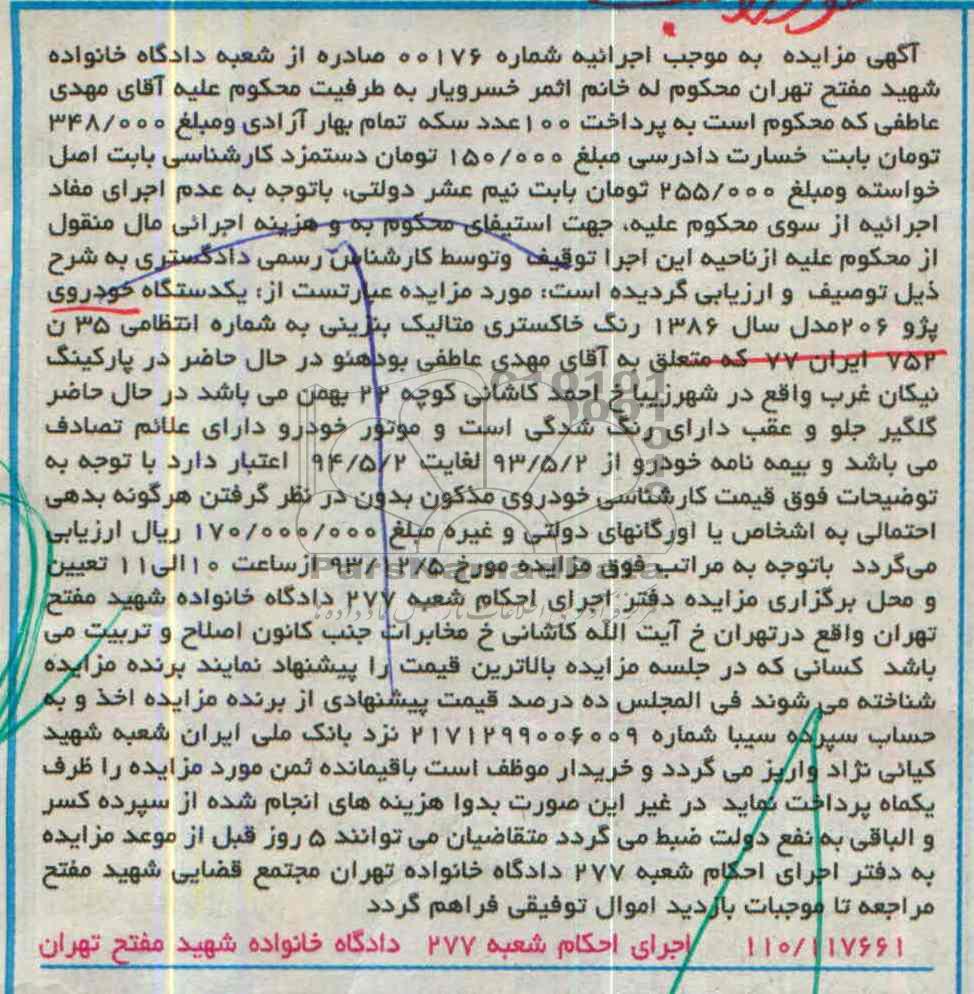 آگهی مزایده به موجب اجرائیه شماره ۰۰۱۷۶ صادره از شعبه دادگاه خانواده
شهید مفتح تهران محکوم له خانم اثمر خسرویار به طرفیت محکوم علیه آقای مهدی
عاطفی که محکوم است به پرداخت ۱۰۰عدد سکه تمام بهار آزادی ومبلغ ۳۴۸/۰۰۰
تومان بابت خسارت دادرسی مبلغ ۱۵۰/۰۰۰ تومان دستمزد کارشناسی بابت اصل
خواسته ومبلغ ۲۵۵/۰۰۰ تومان بابت نیم عشر دولتی، باتوجه به عدم اجرای مفاد
اجرائیه از سوی محکوم علیه، جهت استیفای محکوم به و هزینه اجرائی مال منقول
از محکوم علیه ازناحیه این اجرا توقیف وتوسط کارشناس رسمی دادگستری به شرح
ذیل توصیف و ارزیابی گردیده است: مورد مزایده عبارتست از: یکدستگاه خودروی
پژو ۲۰۶مدل سال ۱۳۸۶ رنگ خاکستری متالیک بنزینی به شماره انتظامی ۳۵ ن
۷۵۲ ایران ۷۷ که متعلق به آقای مهدی عاطفی بودهئو در حال حاضر در پارکینگ
نیکان غرب واقع در شهرزیبا خ احمد کاشانی کوچه ۲۲ بهمن می باشد در حال حاضر
گلگیر جلو و عقب دارای رنگ شدگی است و موتور خودرو دارای علائم تصادف
می باشد و بیمه نامه خودرو از ۹۳/۵/۲ لغایت ۹۴/۵/۲ اعتبار دارد با توجه به
توضیحات فوق قیمت کارشناسی خودروی مذکون بدون در نظر گرفتن هرگونه بدهی
احتمالی به اشخاص یا اورگانهای دولتی و غیره مبلغ ۱۷۰/۰۰۰/۰۰۰ ریال ارزیابی
می‌گردد باتوجه به مراتب فوق مزایده مورخ ۹۳/۱۲/۵ ازساعت ۱۰الی۱۱ تعیین
و محل برگزاری مزایده دفتر اجرای احکام شعبه ۲۷۷ دادگاه خانواده شهید مفتح
تهران واقع درتهران خ آیت الله کاشانی خ مخابرات جنب کانون اصلاح و تربیت می
باشد کسانی که در جلسه مزایده بالاترین قیمت را پیشنهاد نمایند برنده مزایده
شناخته می شوند فی المجلس ده درصد قیمت پیشنهادی از برنده مزایده اخذ و به
حساب سپرده سیبا شماره ۲۱۷۱۲۹۹۰۰۶۰۰۹ نزد بانک ملی ایران شعبه شهید
کیائی نژاد واریز می گردد و خریدار موظف است باقیمانده ثمن مورد مزایده را ظرف
یکماه پرداخت نماید در غیر این صورت بدوا هزینه های انجام شده از سپرده کسر
و الباقی به نفع دولت ضبط می گردد متقاضیان می توانند ۵ روز قبل از موعد مزایده
به دفتر اجرای احکام شعبه ۲۷۷ دادگاه خانواده تهران مجتمع قضایی شهید مفتح
مراجعه تا موجبات بازدید اموال توفیقی فراهم گردد
۱۱۰/۱۱۷۶۶۱ اجرای احکام شعبه ۲۷۷ دادگاه خانواده شهید مفتح تهران
ParsNamadData